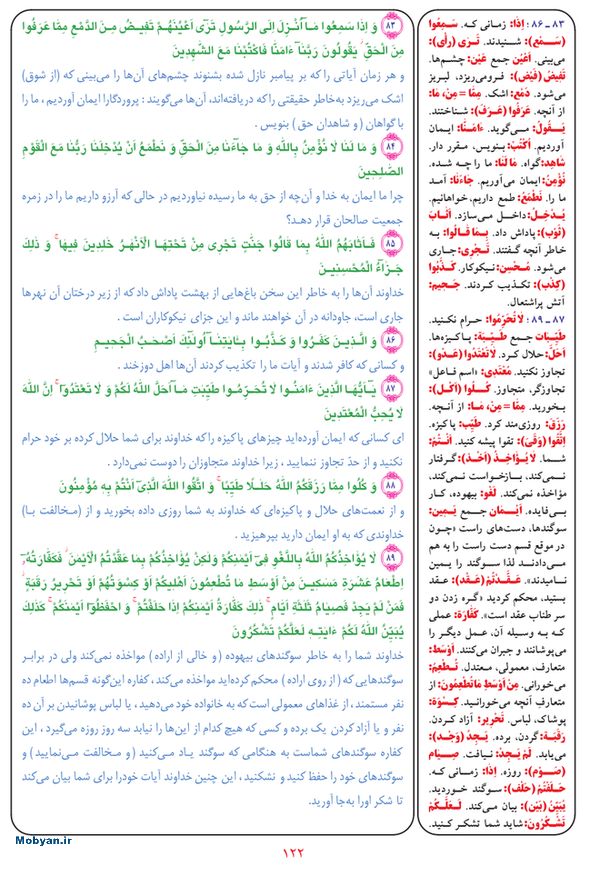 ۸۳ وَ إِذَا سَمِعُوا مَآ أُنْزِلَ إِلَى الرَّسُولِ تَرَىٰٓ أَعْيُنَهُمْ تَفِيضُ مِنَ الدَّمْعِ مِمَّا عَرَفُوا
مِنَ الْحَقِّ ۖ يَقُولُونَ رَبَّنَآ ءَامَنَّا فَاكْتُبْنَا مَعَ الشَّٰهِدِينَ
و هر زمان آیاتی را که بر پیامبر نازل شده بشنوند چشم‌های آن‌ها را می‌بینی که (از شوق)
اشک می‌ریزد به‌خاطر حقیقتی را که دریافته‌اند، آن‌ها می‌گویند : پروردگارا ایمان آوردیم ، ما را
با گواهان ( و شاهدان حق ) بنویس .
۸۴ وَ مَا لَنَا لَا نُؤْمِنُ بِاللهِ وَ مَا جَآءَنَا مِنَ الْحَقِّ وَ نَطْمَعُ أَنْ يُدْخِلَنَا رَبُّنَا مَعَ الْقَوْمِ
الصَّٰلِحِينَ
چرا ما ایمان به خدا و آن‌چه از حق به ما رسیده نیاوردیم در حالی که آرزو داریم ما را در زمره
جمعیت صالحان قرار دهد؟
۸۵ فَأَثَابَهُمُ اللهُ بِمَا قَالُوا جَنَّٰتٍ تَجْرِى مِنْ تَحْتِهَا الْأَنْهَٰرُ خَٰلِدِينَ فِيهَا ۚ وَ ذَٰلِكَ
جَزَآءُ الْمُحْسِنِينَ
خداوند آن‌ها را به خاطر این سخن باغ‌هایی از بهشت پاداش داد که از زیر درختان آن نهرها
جاری است، جاودانه در آن خواهند ماند و این جزای نیکوکاران است .
۸۶ وَ الَّذِينَ كَفَرُوا وَ كَذَّبُوا بِـَٔايَٰتِنَآ أُولَٰٓئِكَ أَصْحَٰبُ الْجَحِيمِ
و کسانی که کافر شدند و آیات ما را تکذیب کردند آن‌ها اهل دوزخند .
۸۷ يَٰٓأَيُّهَا الَّذِينَ ءَامَنُوا لَا تُحَرِّمُوا طَيِّبَٰتِ مَآ أَحَلَّ اللهُ لَكُمْ وَ لَا تَعْتَدُوٓا ۚ إِنَّ اللهَ
لَا يُحِبُّ الْمُعْتَدِينَ
ای کسانی که ایمان آورده‌اید چیزهای پاکیزه را که خداوند برای شما حلال کرده بر خود حرام
نکنید و از حدّ تجاوز ننمایید ، زیرا خداوند متجاوزان را دوست نمی‌دارد .
۸۸ وَ كُلُوا مِمَّا رَزَقَكُمُ اللهُ حَلَٰلًا طَيِّبًا ۚ وَ اتَّقُوا اللهَ الَّذِىٓ أَنْتُمْ بِهِ مُؤْمِنُونَ
و از نعمت‌های حلال و پاکیزه‌ای که خداوند به شما روزی داده بخورید و از (مخالفت با)
خداوندی که به او ایمان دارید بپرهیزید .
۸۹ لَا يُؤَاخِذُكُمُ اللهُ بِاللَّغْوِ فِىٓ أَيْمَٰنِكُمْ وَلَٰكِنْ يُؤَاخِذُكُمْ بِمَا عَقَّدْتُمُ الْأَيْمَٰنَ ۖ فَكَفَّارَتُهُ
إِطْعَامُ عَشَرَةِ مَسَٰكِينَ مِنْ أَوْسَطِ مَا تُطْعِمُونَ أَهْلِيكُمْ أَوْ كِسْوَتُهُمْ أَوْ تَحْرِيرُ رَقَبَةٍ ۖ
فَمَنْ لَمْ يَجِدْ فَصِيَامُ ثَلَٰثَةِ أَيَّامٍ ۚ ذَٰلِكَ كَفَّارَةُ أَيْمَٰنِكُمْ إِذَا حَلَفْتُمْ ۚ وَ احْفَظُوٓا أَيْمَٰنَكُمْ ۚ كَذَٰلِكَ
يُبَيِّنُ اللهُ لَكُمْ ءَايَٰتِهِ لَعَلَّكُمْ تَشْكُرُونَ
خداوند شما را به خاطر سوگندهای بیهوده ( و خالی از اراده ) مواخذه نمی‌کند ولی در برابر
سوگندهایی که ( از روی اراده ) محکم کرده‌اید مواخذه می‌کند، کفاره این‌گونه قسم‌ها اطعام ده
نفر مستمند ، از غذاهای معمولی است که به خانواده خود می‌دهید ، یا لباس پوشانیدن بر آن ده
نفر و یا آزاد کردن یک برده و کسی که هیچ کدام از این‌ها را نیابد سه روز روزه می‌گیرد ، این
کفاره سوگندهای شماست به هنگامی که سوگند یاد می‌کنید ( و مخالفت می‌نمایید ) و
سوگندهای خود را حفظ کنید و نشکنید ، این چنین خداوند آیات خود را برای شما بیان می‌کند
تا شکر او را به‌جا آورید.
۸۳ ـ ۸۶: إِذَا: زمانی که. سَمِعُوا
(سَمَعَ): شنیدند. تَرَى (رأى):
می‌بینی. أَعْيُن جمع عَيْن: چشم‌ها.
تَفِيضُ (فَيْض): فرومی‌ریزد، لبریز
می‌شود. دَمْع: اشک. مِمَّا = مِنْ، مَا:
از آنچه. عَرَفُوا (عَرَفَ): شناختند.
يَقُولُ: می‌گوید. ءَامَنَّا: ایمان
آوردیم. اُكْتُبْ: بنویس، مقرر دار.
شَاهِد: گواه. مَا لَنَا: ما را چه شده.
نُؤْمِنُ: ایمان می‌آوریم. جَاءَنَا: آمد
ما را. نَطْمَعُ: طمع داریم، خواهانیم.
يُدْخِلُ: داخل می‌سازد. أَثَابَ
(ثَوْب): پاداش داد. بِمَا قَالُوا: به
خاطر آنچه گفتند. تَجْرِى: جاری
می‌شود. مُحْسِن: نیکوکار. كَذَّبُوا
(كِذْب): تکذیب کردند. جَحِيم:
آتش پراشتعال.
۸۷ ـ ۸۹: لَا تُحَرِّمُوا: حرام نکنید.
طَيِّبَات جمع طَيِّبَة: پاکیزه‌ها.
أَحَلَّ: حلال کرد. لَا تَعْتَدُوا (عَدَوَ):
تجاوز نکنید. مُعْتَدِى: «اسم فاعل»
تجاوزگر، متجاوز. كُلُوا (أكل):
بخورید. مِمَّا = مِنْ، مَا: از آنچه.
رَزَقَ: روزی‌مند کرد. طَيِّب: پاکیزه.
اِتَّقُوا (وَقَىَ): تقوا پیشه کنید. أَنْتُمْ:
شما. لَا يُؤَاخِذُ (أَخَذَ): گرفتار
نمی‌کند، بازخواست نمی‌کند،
مؤاخذه نمی‌کند. لَغْو: بیهوده، کار
بی‌فایده. أَيْمَان جمع يَمِين:
سوگندها، دست‌های راست «چون
در موقع قسم دست راست را به هم
می‌دادند لذا سوگند را یمین
نامیدند». عَقَّدْتُمْ (عَقَدَ): عقد
بستید، محکم کردید «گره زدن دو
سر طناب عقد است». كَفَّارَة: عملی
که به وسیله آن، عمل دیگر را
می‌پوشانند و جبران می‌کنند. أَوْسَط:
متعارف، معمولی، معتدل. تُطْعِمُ:
می‌خورانی. مِنْ أَوْسَطِ مَا تُطْعِمُونَ: از
متعارفِ آنچه می‌خورانید. كِسْوَة:
پوشاک، لباس. تَحْرِير: آزاد کردن.
رَقَبَة: گردن، برده. يَجِدُ (وَجَدَ):
می‌یابد. لَمْ يَجِدْ: نیافت. صِيَام
(صَوْم): روزه. إِذَا: زمانی که.
حَلَفْتُمْ (حَلَفَ): سوگند خوردید.
يُبَيِّنُ (بَيَن): بیان می‌کند. لَعَلَّكُمْ
تَشْكُرُونَ: شاید شما تشکر کنید.
۱۲۲
Mobyan.ir